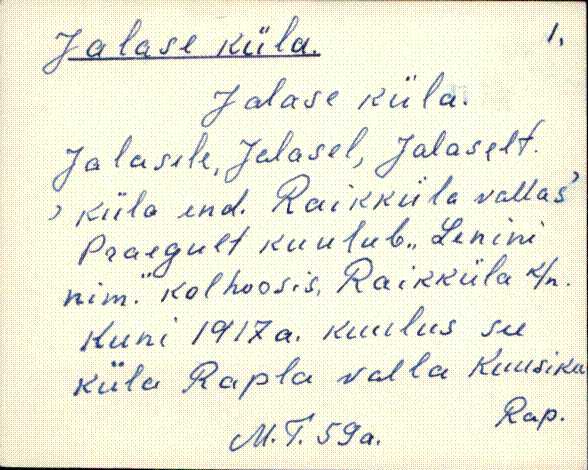 Jalase küla. 1.
Jalase küla.
Jalasele, Jalasel, Jalaselt.
› küla end. Raikküla vallas›
Praegult kuulub „Lenini
nim." kolhoosis, Raikküla k/n.
Kuni 1917 a. kuulus see
küla Rapla valla Kuusiku
Rap.
M. T. 59 a.